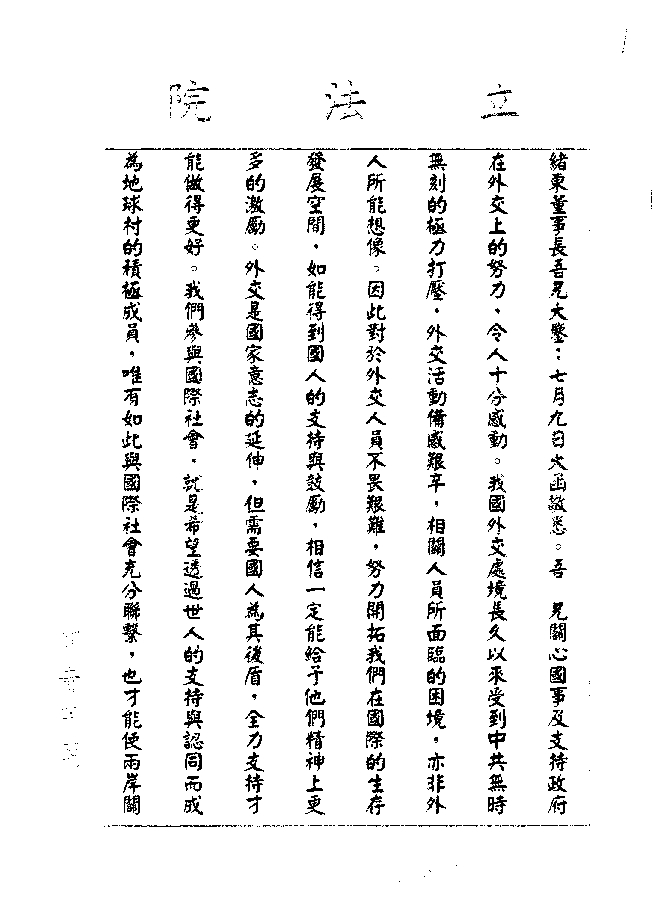 立法院
緒東董事長吾兄大鑒：七月九日大函敬悉。吾　兄關心國事及支持政府
在外交上的努力，令人十分感動。我國外交處境長久以來受到中共無時
無刻的極力打壓，外交活動備感艱辛，相關人員所面臨的困境，亦非外
人所能想像。因此對於外交人員不畏艱難，努力開拓我們在國際的生存
發展空間，如能得到國人的支持與鼓勵，相信一定能給予他們精神上更
多的激勵。外交是國家意志的延伸，但需要國人為其後盾，全力支持才
能做得更好。我們參與國際社會，就是希望透過世人的支持與認同而成
為地球村的積極成員，唯有如此與國際社會充分聯繫，也才能使兩岸關